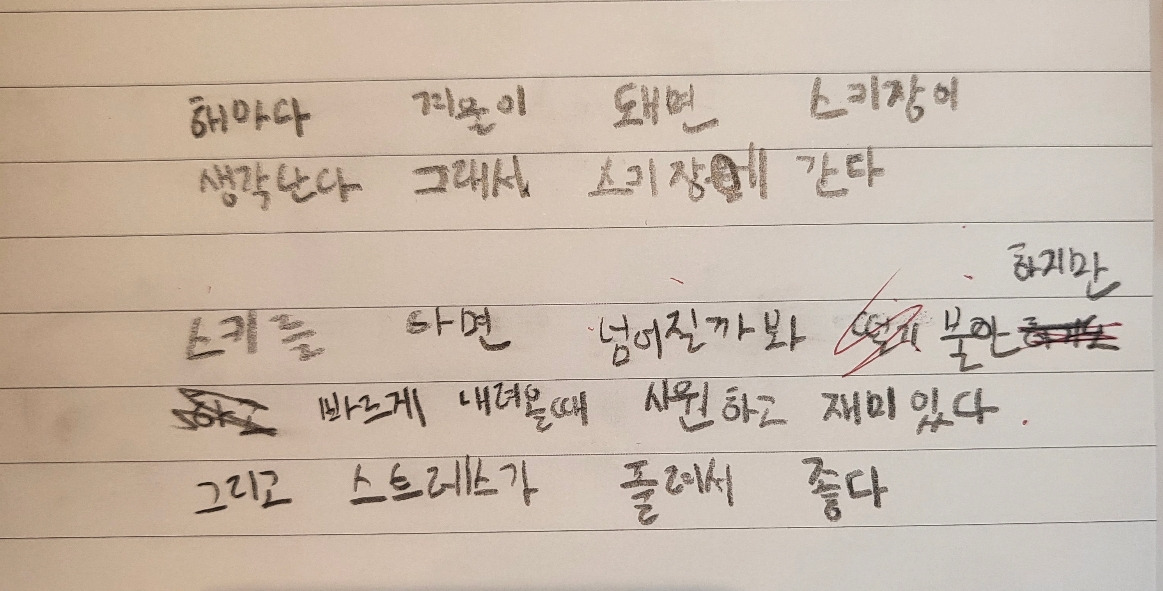 해마다 겨울이 돼면 스키장이
생각난다 그래서 스키장에 간다
하지만
스키를 타면 넘어질까봐 불안
빠르게 내려올때 시원하고 재미있다.
그리고 스트레스가 풀려서 좋다